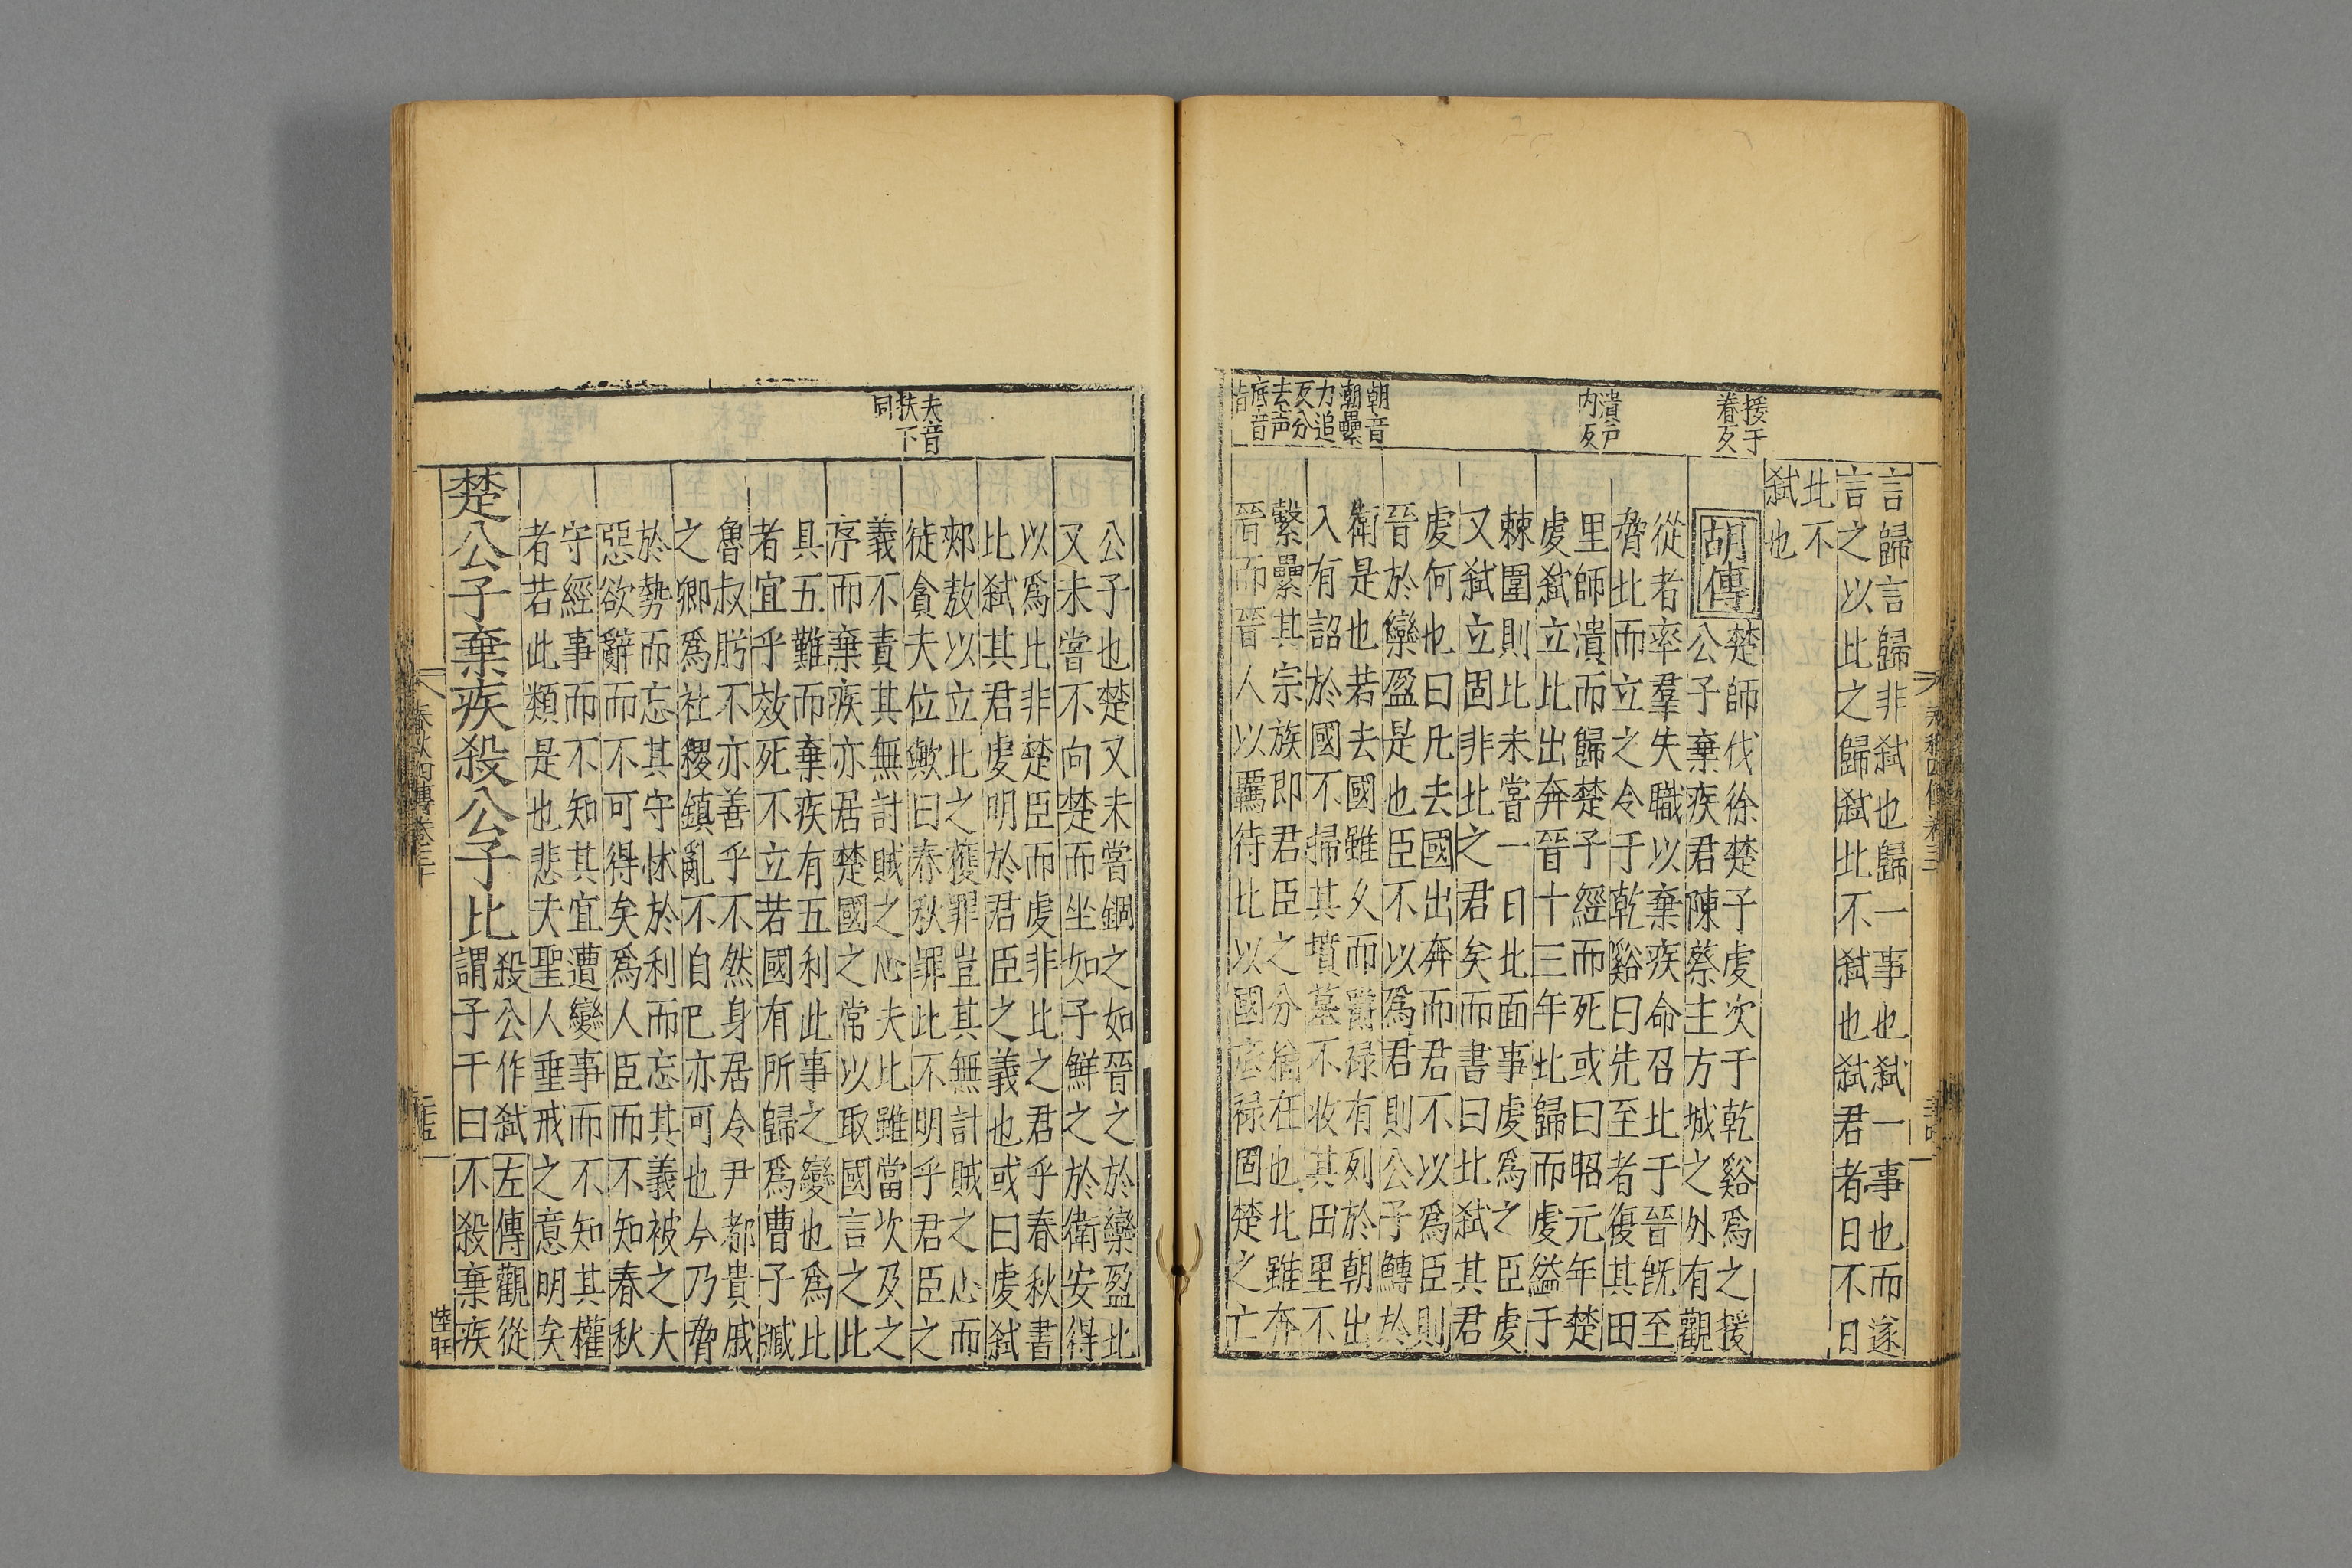 援于
眷反
潰戸
内反
朝音
潮纍
力追
反分
去声
底音
言歸言歸非弑也歸一事也弑一事也而遂
言之以此之歸弑比不弑也弑君者日不日
比不
弑也
胡傳
楚師伐徐楚子虔次于乾谿爲之援
公子棄疾君陳蔡主方城之外有觀
從者率羣失職以棄疾命召比于晉旣至
脅比而立之令于乾谿曰先至者復其田
里師潰而歸楚子經而死或曰昭元年楚
虔弑立比出奔晉十三年比歸而虔縊于
棘圍則比未嘗一日北面事虔爲之臣虔
又弑立固非比之君矣而書曰比弑其君
虔何也曰凡去國出奔而君不以爲臣則
晉於欒盈是也臣不以爲君則公子鱄於
衛是也若去國雖久而爵禄有列於朝出
入有詔於國不掃其墳墓不收其田里不
繫纍其宗族即君臣之分猶在也比雖奔
晉而晉人以羈待比以國底禄固楚之亡
夫音
扶下
同
公子也楚又未嘗錮之如晉之於欒盈比
又未嘗不向楚而坐如子鮮之於衛安得
以爲比非楚臣而虔非比之君乎春秋書
比弑其君虔明於君臣之義也或曰虔弑
郟敖以立比之獲罪豈其無討賊之心而
徒貪夫位歟曰春秋罪比不明乎君臣之
義不責其無討賊之心夫比雖當次及之
序而棄疾亦居楚國之常以取國言之比
具五難而棄疾有五利此事之變也爲比
者宜乎效死不立若國有所歸爲曹子臧
魯叔肸不亦善乎不然身居令尹都貴戚
之卿爲社稷鎮亂不自已亦可也今乃脅
於勢而忘其守怵於利而忘其義被之大
惡欲辭而不可得矣爲人臣而不知春秋
守經事而不知其宜遭變事而不知其權
者若此類是也悲夫聖人垂戒之意明矣
楚公子棄疾殺公子比
殺公作弑左傳觀從
謂子干曰不殺棄疾
春秋四傳卷三十